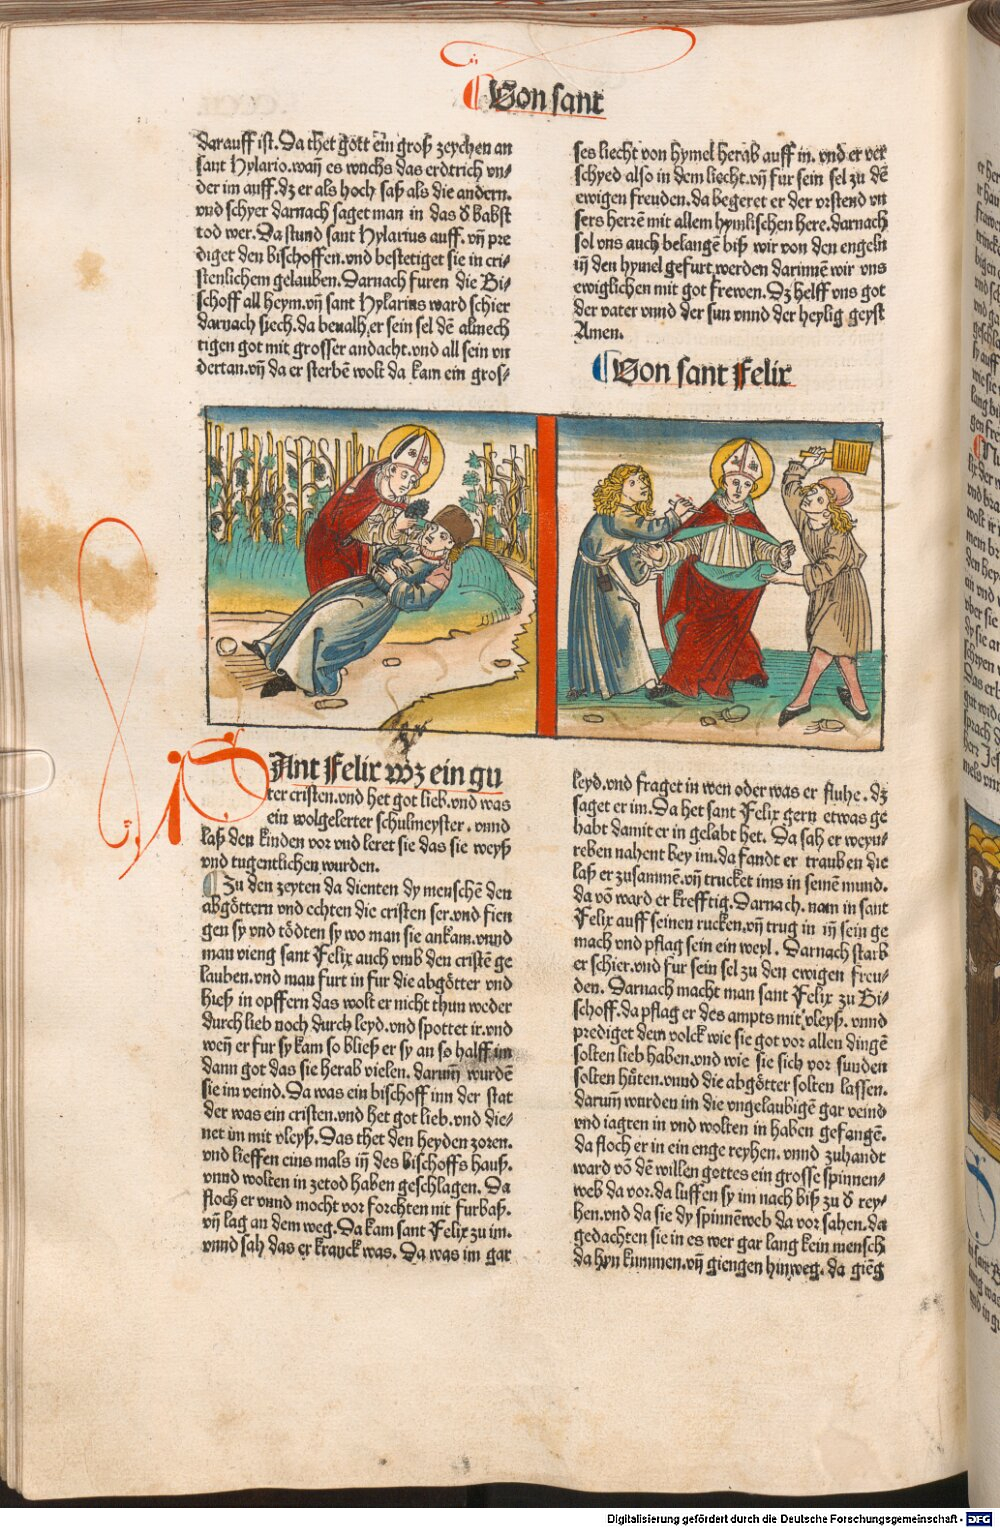 Von sant
darauff ist. Da thet gott ein groß zeychen an
sant Hylario. wañ es wuchs das erdtrich vn⸗
der im auff. dz er als hoch saß als die andern.
vnd schyer darnach saget man in das ð babst
tod wer. Da stund sant Hylarius auff. vñ pre
diget den bischoffen. vnd bestetiget sie in cri⸗
stenlichem gelauben. Darnach furen die Bi⸗
schoff all heym. vñ sant Hylarius ward schier
darnach siech. da beualh er sein sel dē almech
tigen got mit grosser andacht. vnd all sein vn
dertan. vñ da er sterbē wolt da kam ein gros⸗
ses liecht von hymel herab auff in. vnd er ver
schyed also in dem liecht. vñ fur sein sel zu dē
ewigen freuden. da begeret er der vrstend vn
sers herrē mit allem hymlischen here. darnach
sol vns auch belangē biß wir von den engeln
in den hymel gefurt werden darinnē wir vns
ewiglichen mit got frewen. Dz helff vns got
der vater vnnd der sun vnnd der heylig geyst
Amen.
Von sant Felix
SAnt Felix wz ein gu
ter cristen. vnd het got lieb. vnd was
ein wolgelerter schulmeyster. vnnd
laß den kinden vor vnd leret sie das sie weyß
vnd tugentlichen wurden.
Zu den zeyten da dienten dy menschē den
abgöttern vnd echten die cristen ser. vnd fien
gen sy vnd tödten sy wo man sie ankam. vnnd
man vieng sant Felix auch vmb den cristē ge
lauben. vnd man furt in fur die abgötter vnd
hieß in opffern das wolt er nicht thun weder
durch lieb noch durch leyd. vnd spottet ir. vnd
weñ er fur sy kam so bließ er sy an so halff im
dann got das sie herab vielen. darum̄ wurdē
sie im veind. Da was ein bischoff inn der stat
der was ein cristen. vnd het got lieb. vnd die⸗
net im mit vleyß. Das thet den heyden zoren.
vnd lieffen eins mals in des bischoffs hauß.
vnnd wolten in zetod haben geschlagen. Da
floch er vnnd mocht vor forchten nit furbaß.
vñ lag an dem weg. Da kam sant Felix zu im.
vnnd sah das er kranck was. Da was im gar
leyd. vnd fraget in wen oder was er fluhe. dz
saget er im. Da het sant Felix gern etwas ge
habt damit er in gelabt het. Da sah er weyn⸗
reben nahent bey im. da fandt er trauben die
laß er zusammē. vñ trucket ims in seinē mund.
da vō ward er krefftig. Darnach. nam in sant
Felix auff seinen rucken. vñ trug in in sein ge
mach vnd pflag sein ein weyl. Darnach starb
er schier. vnd fur sein sel zu den ewigen freu⸗
den. Darnach macht man sant Felix zu Bi⸗
schoff. da pflag er des ampts mit vleyß. vnnd
prediget dem volck wie sie got vor allen dingē
solten lieb haben. vnd wie sie sich vor sunden
solten hüten. vnnd die abgötter solten lassen.
darum̄ wurden im die vngelaubigē gar veind
vnd iagten in vnd wolten in haben gefangē.
da floch er in ein enge reyhen. vnnd zuhandt
ward vō dē willen gottes ein grosse spinnen⸗
web da vor. da luffen sy im nach biß zu ð rey⸗
hen. vnd da sie dy spinnēweb da vor sahen. da
gedachten sie in es wer gar lang kein mensch
da hyn kummen. vñ giengen hinweg. da giēg
Digitalisierung gefördert durch die Deutsche Forschungsgemeinschaft - DFG